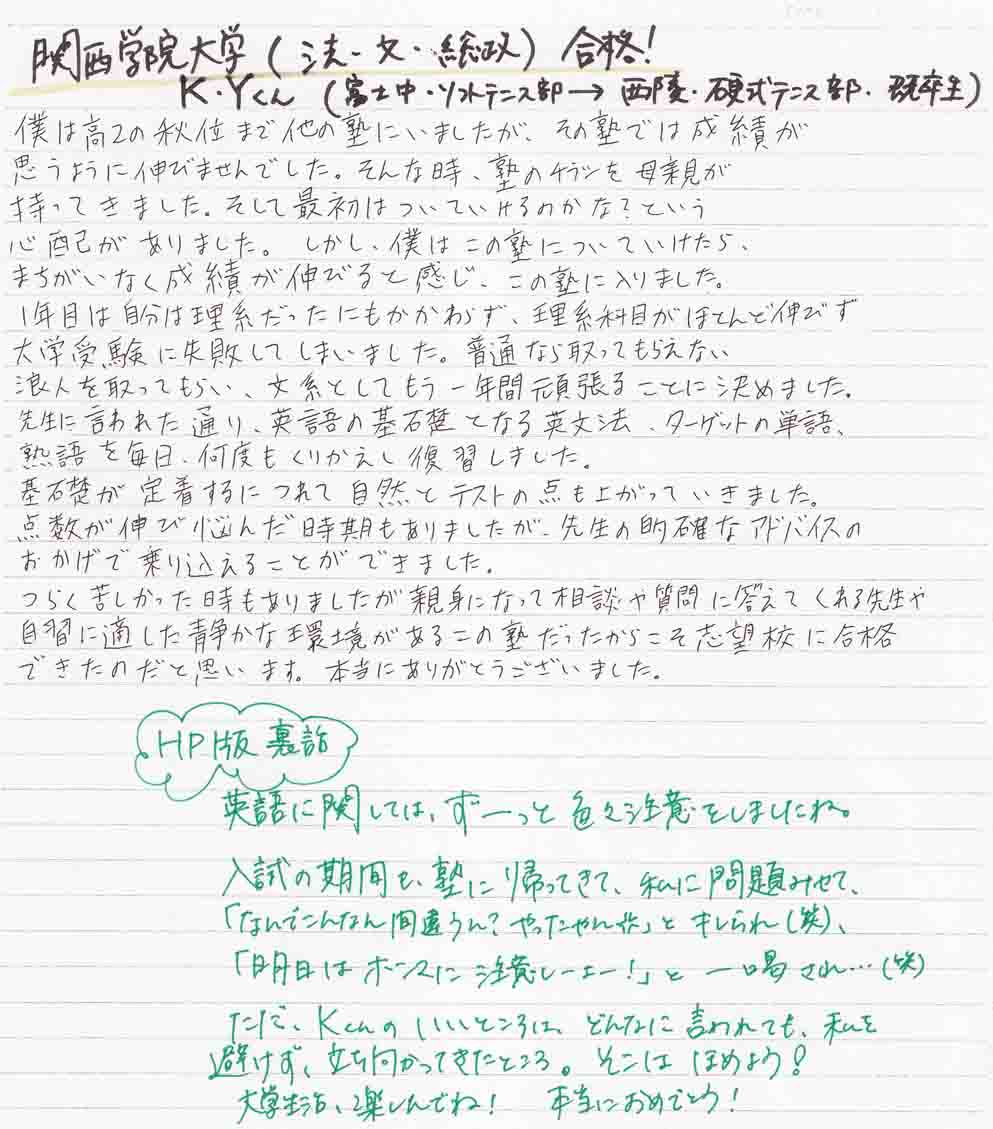 関西学院大学(法・文・総政)合格!
K・Yくん(富士中・ソフトテニス部→西陵・硬式テニス部・既卒生)
僕は高2の秋位まで他の塾にいましたが、その塾では成績が
思うように伸びませんでした。そんな時、塾のチラシを母親が
持ってきました。そして最初はついていけるのかな?という
心配がありました。しかし、僕はこの塾についていけたら、
まちがいなく成績が伸びると感じ、この塾に入りました。
1年目は自分は理系だったにもかかわらず、理系科目がほとんど伸びず
大学受験に失敗してしまいました。普通なら取ってもらえない
浪人を取ってもらい、文系としてもう一年間頑張ることに決めました。
先生に言われた通り、英語の基礎となる英文法、ターゲットの単語、
熟語を毎日、何度もくりかえし復習しました。
基礎が定着するにつれて自然とテストの点も上がっていきました。
点数が伸び悩んだ時期もありましたが、先生の的確なアドバイスの
おかげで乗り込えることができました。
つらく苦しかった時もありましたが親身になって相談や質問に答えてくれる先生や
自習に適した静かな環境があるこの塾だったからこそ志望校に合格
できたのだと思います。本当にありがとうございました。
HP版 裏話
英語に関しては、ずーっと色々注意をしましたね。
入試の期間も、塾に帰ってきて、私に問題みせて、
「なんでこんなん間違うん?やったやん」とキレられ(笑)、
「明日はホンマに注意しーよー!」と一喝され…(笑)
ただ、Kくんのいいところは、どんなに言われても、私を
避けず、立ち向かってきたところ。そこはほめよう!
大学生活、楽しんでね! 本当におめでとう!